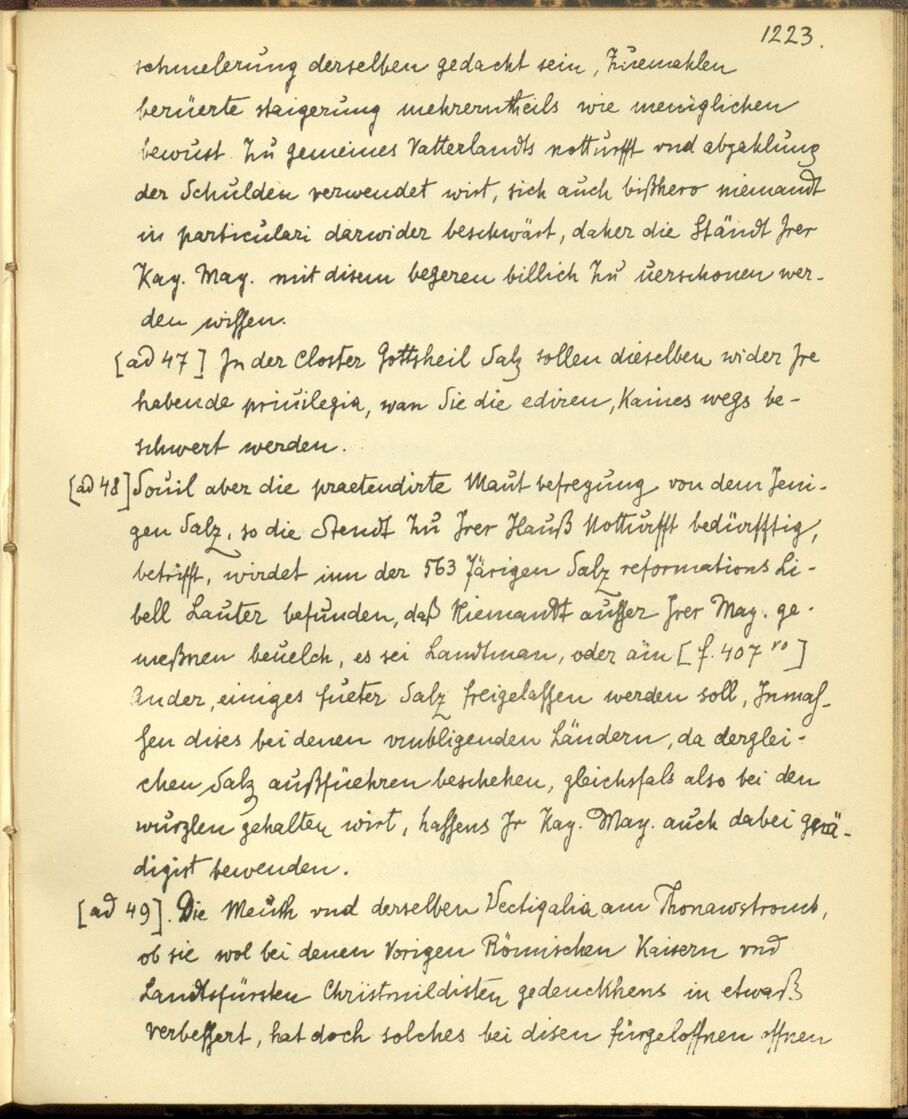 1223.
schmelerung derselben gedacht sein, Zuemahlen
berüerte staigerung mehrerntheils wie meniglichen
bewust Zu gemeines Vatterlandts notturfft vnd abzahlung
der Schulden verwendet wirt, sich auch bißhero niemandt
in particulari darwider beschwärt, daher die Ständt Jrer
Kay. May. mit disem begeren billich Zu uerschonen wer-
den wissen.
[ad 47] Jn der Closter Gottsheil Salz sollen dieselben wider Jre
habende priuilegia, wan Sie die ediren, Kaines wegs be-
schwert werden.
[ad 48] Souil aber die praetendirte Maut befreyung von dem Jeni-
gen Salz, so die Stendt Zu Jrer Hauß Notturfft bedürfftig,
betrifft, wirdet inn der 563 Järigen Salz reformations Li-
bell Lauter befunden, daß Niemandt ausser Jrer May. ge-
meßnen beuelch, es sei Landtman, oder äin [f. 407 ro]
Ander, einiges fueter Salz freigelassen werden soll, Jnmas-
sen dises bei denen vmbligenden Ländern, da derglei-
chen Salz außfüehren beschehen, gleichsfals also bei den
wurzlen gehalten wirt, hassens Jr Kay. May. auch dabei gnä-
digist bewenden.
[ad 49]. Die Meuth vnd derselben Vectigalia am Thonawstromb,
ob sie wol bei denen Vorigen Römischen Kaisern vnd
Landtsfürsten Christmildisten gedenckhens in etwaß
verbessert, hat doch solches bei disen fürgeloffnen offnen